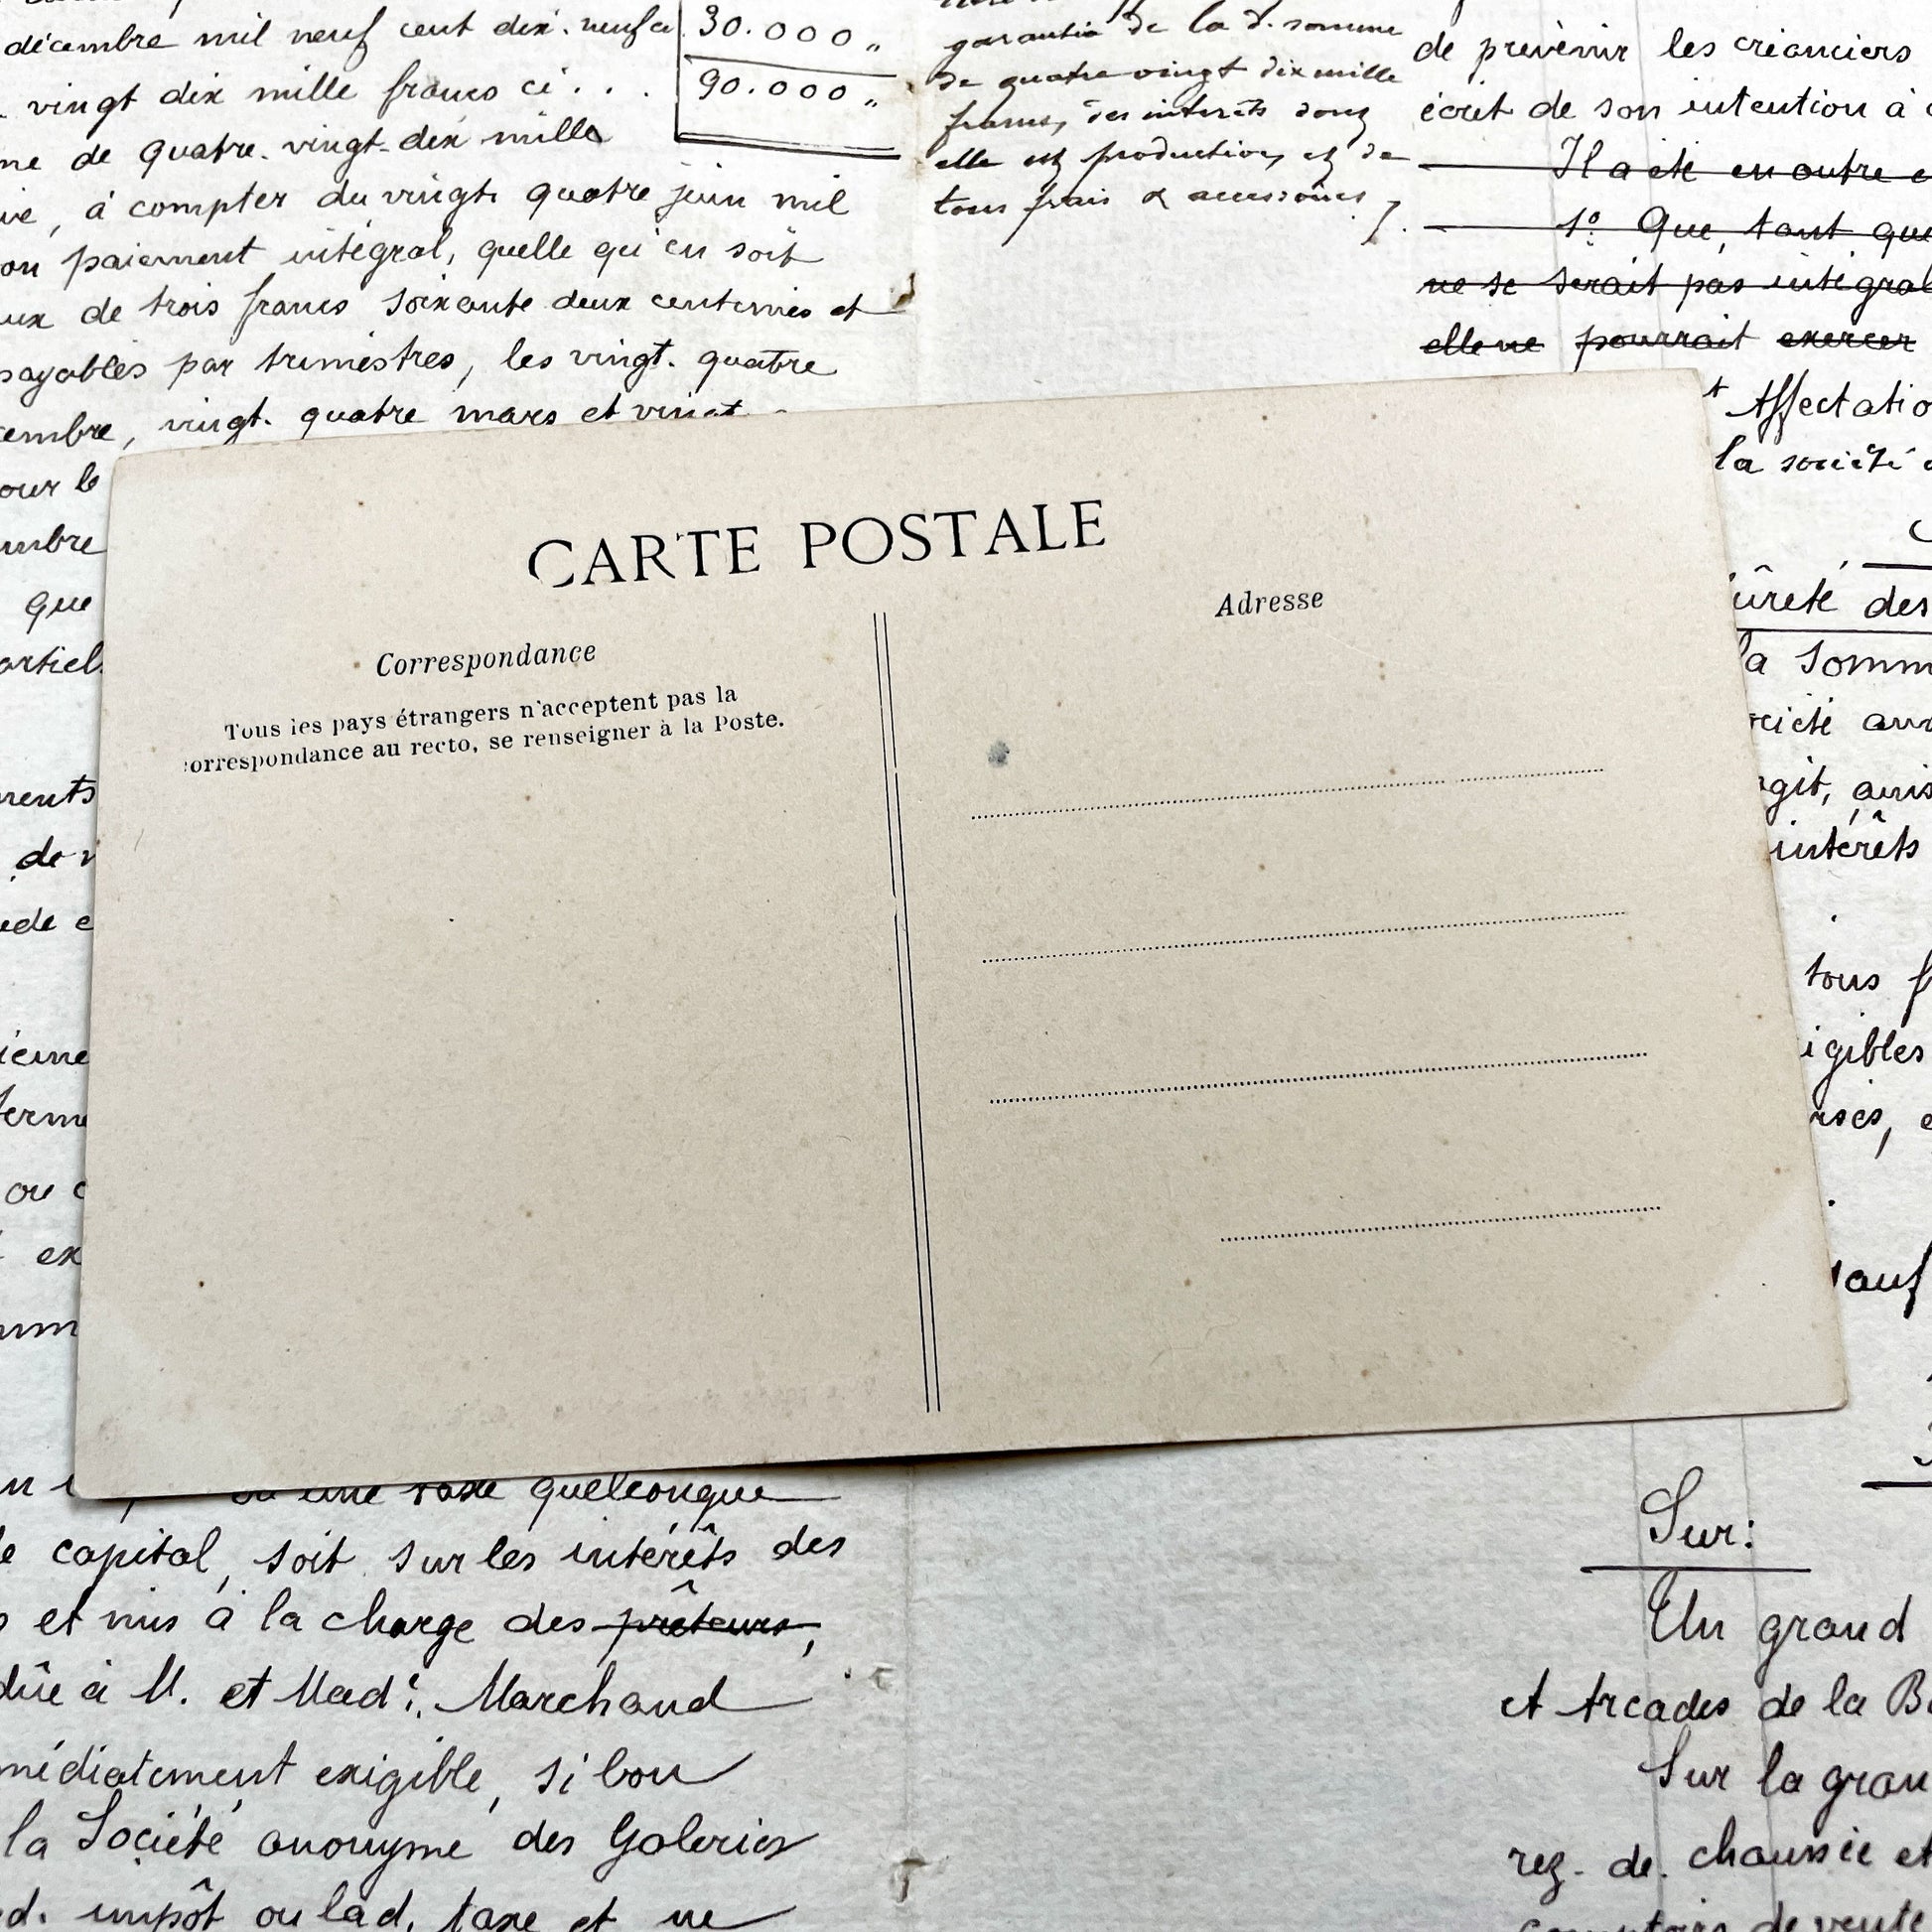 décembre mil neuf cent dix. neuf ci
30.000 „
vingt dix mille francs ci . . .
90.000 „
de quatre. vingt. dix mille
, à compter du vingt quatre juin mil
paiement intégral, quelle qu'en soit
de trois francs soixante deux centimes et
payables par trimestres, les vingt. quatre
, vingt. quatre mars et vingt
our le
que
garantie de la d. somme
de quatre vingt dix mille
francs, des intérêts dont
elle est productive, et de
tous frais & accessoires
de prévenir les créanciers
écrit de son intention à
Il a été en outre
1º: Que, tant que
ne se serait pas intégral
elle ne pourrait exercer
Affectatio
la société
ûreté des
la somm
intérêts
tous f
igibles
CARTE POSTALE
Correspondance
Tous les pays étrangers n'acceptent pas la
correspondance au recto, se renseigner à la Poste.
Adresse
ou une taxe quelconque
capital, soit sur les intérêts des
et mis à la charge des prêteurs,
dûe à M. et Mad.e Marchand
médiatement exigible, si bon
la Société anonyme des Galeries
impôt ou lad. taxe et ne
Sur:
Un grand
et Arcades de la B
Sur la gran
rez. de. chaussée et
comptoirs de vente